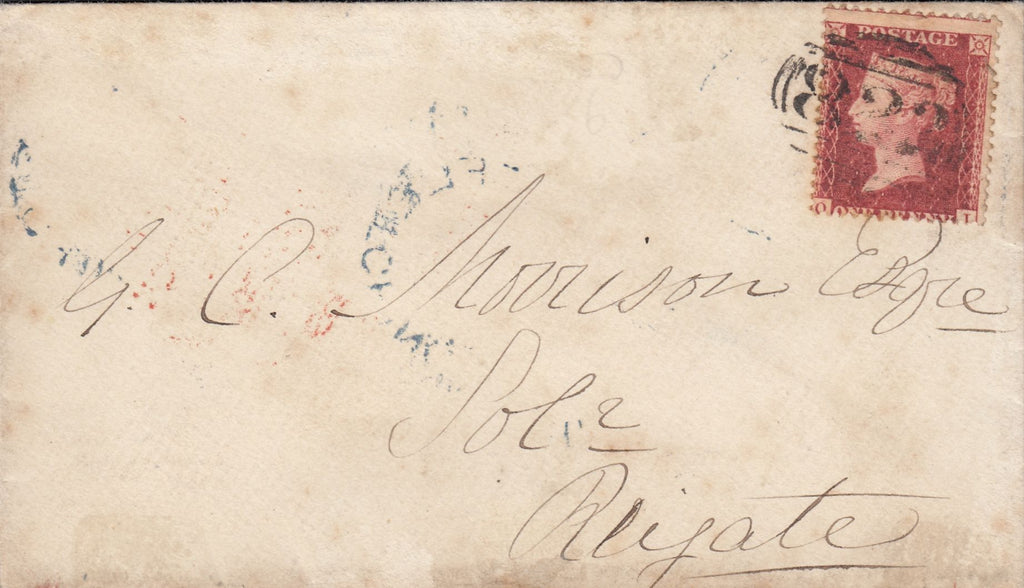 POSTAGE
O ONE PENNY I
G. C. Morrison Esqre
Solr
Reigate